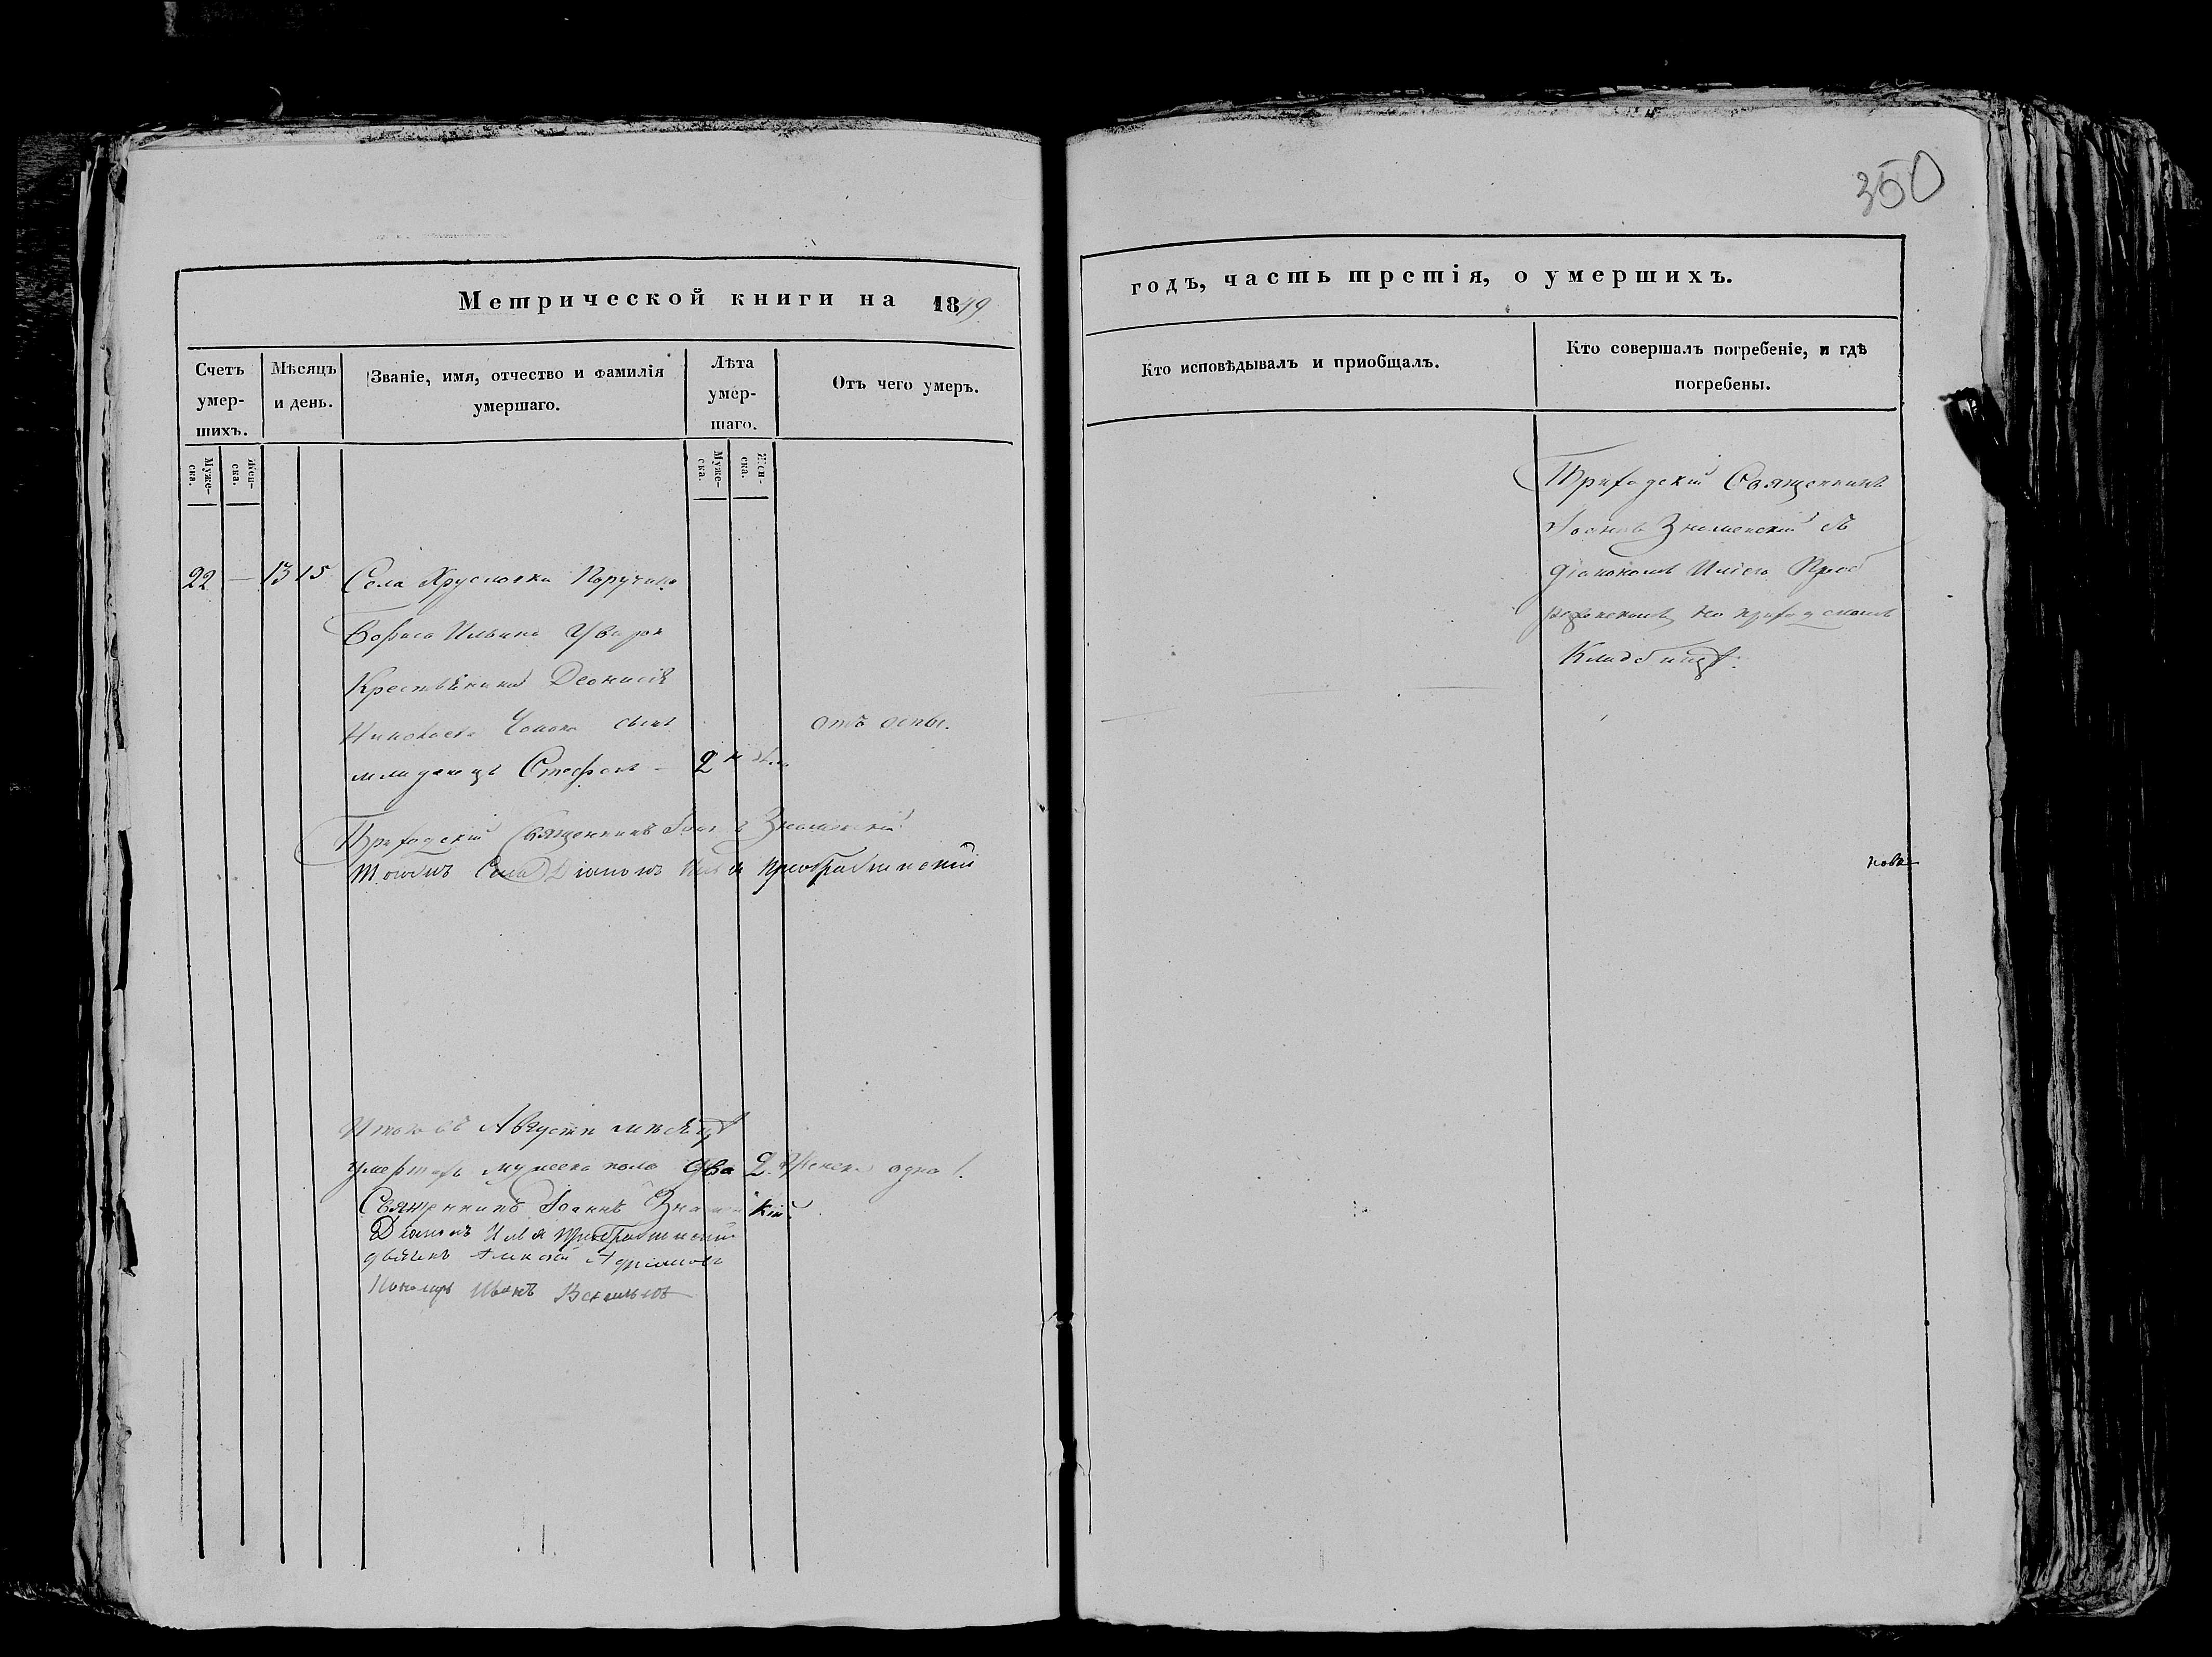 350
Метрической книги на 1849
годъ, часть третія, о умершихъ.
Счетъ умер-шихъ.
Мѣсяцъ и день.
Званіе, имя, отчество и фамилія умершаго.
Лѣта умер-шаго.
Отъ чего умеръ.
Кто исповѣдывалъ и приобщалъ.
Кто совершалъ погребеніе, и гдѣ погребены.
Муже-ска.
Жен-ска.
Муже-ска.
Жен-ска.
22 — 13 15 Села Хрусловки Поручика
Бориса Ильина
Крестьянина Деонисія
сынъ
отъ оспы.
младенецъ Стефанъ — 2
Приходскій Священникъ Іоаннъ Знаменскій
Тогожъ Села Діаконъ Илья Преображенскій
Приходскій Священникъ
Іоаннъ Знаменскій съ
Діакономъ Иліею Преоб
раженскимъ на приходскомъ
Кладбищѣ.
Итого въ Августѣ мѣсяцѣ
умершихъ мужеска пола два 2. Женска одна 1.
Священникъ Іоаннъ Знаменскій
Діаконъ Илья Преображенскій
дьячекъ Алексѣй
Пономарь Иванъ Васильевъ